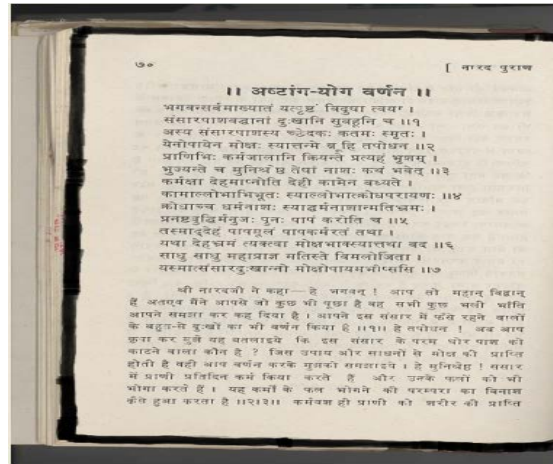 ७०
[ नारद पुराण
।। अष्टांग-योग वर्णन ।।
भगवन्सर्वमाख्यातं यत्पृष्टं विदुषा त्वया ।
संसारपाशबद्धानां दुःखानि सुबहूनि च ।।१
अस्य संसारपाशस्य च्छेदकः कतमः स्मृतः ।
येनोपायेन मोक्षः स्यात्तन्मे ब्रूहि तपोधन ।।२
प्राणिभिः कर्मजालानि क्रियन्ते प्रत्यहं भृशम् ।
भुज्यन्ते च मुनिश्रेष्ठ तेषां नाशः कथं भवेत् ।।३
कर्मक्षा देहमाप्नोति देही कामेन बध्यते ।
कामाल्लोभाभिभूतः स्याल्लोभात्क्रोधपरायणः ।।४
क्रोधाच्च धर्मनाशः स्याद्धर्मनाशान्मतिभ्रमः ।
प्रनष्टबुद्धिर्मनुजः पुनः पापं करोति च ।।५
तस्माद्देहं पापमूलं पापकर्मरतं तथा ।
यथा देहभ्रमं त्यक्त्वा मोक्षभाक्स्यात्तथा वद ।।६
साधु साधु महाप्राज्ञ मतिस्ते विमलोजिता ।
यस्मात्संसारदुःखान्नो मोक्षोपायमभीप्ससि ।।७
श्री नारदजी ने कहा—हे भगवन् ! आप तो महान् विद्वान्
हैं अतएव मैंने आपसे जो कुछ भी पूछा है वह सभी कुछ भली भाँति
आपने समझा कर कह दिया है । आपने इस संसार में फँसे रहने वालों
के बहुत-से दुःखों का भी वर्णन किया है ।।१।। हे तपोधन ! अब आप
कृपा कर मुझे यह बतलाइये कि इस संसार के परम घोर पाश को
काटने वाला कौन है ? जिस उपाय और साधनों से मोक्ष की प्राप्ति
होती है वही आप वर्णन करके मुझको समझाइये । हे मुनिश्रेष्ठ ! संसार
में प्राणी प्रतिदिन कर्म किया करते हैं और उनके फलों को भी
भोगा करते हैं । यह कर्मों के फल भोगने की परम्परा का विनाश
कैसे हुआ करता है ।।२।३।। कर्मवश ही प्राणी को शरीर की प्राप्ति